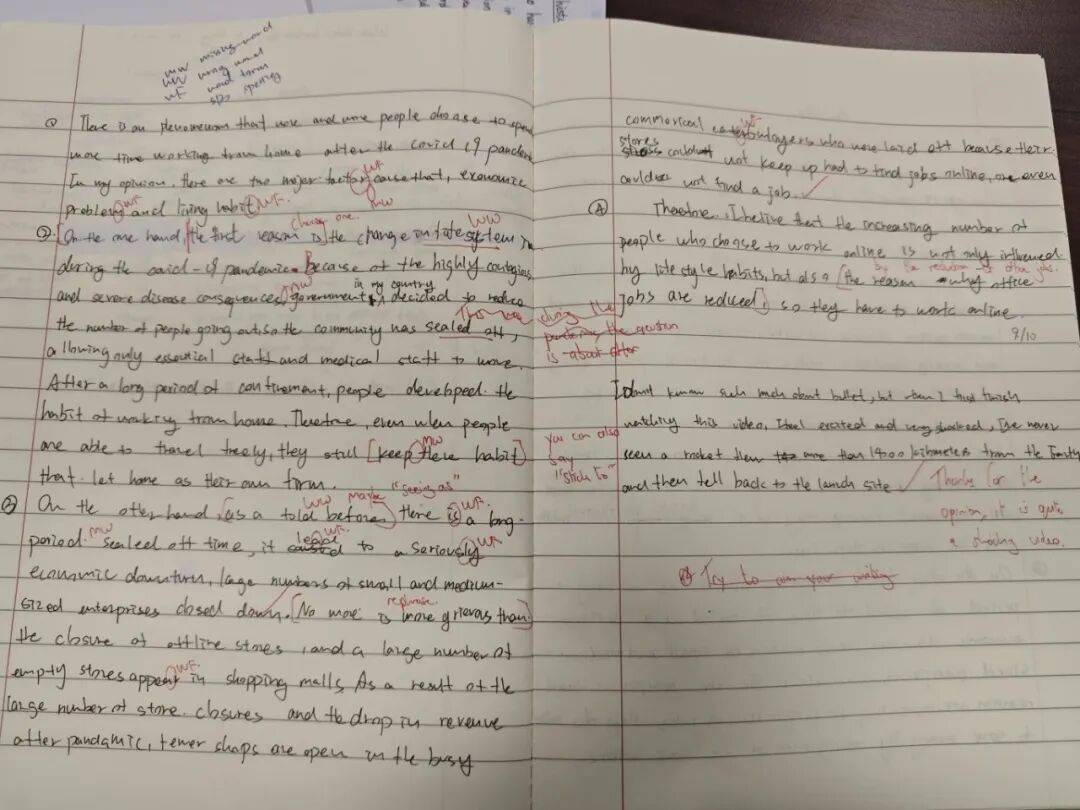 mw missing word
ww wrong word
wF word form
sp spelling
① There is an phenomenon that more and more people choose to spend
more time working from home after the covid 19 pandemic
In my opinion, there are two major factor cause that, economic
WF
MW
problem and living habit.
WF WF.
change one.
WW
② [On the one hand, the first reason is] the change in life system in
during the covid-19 pandemic. Because of the highly contagious
in my country
and severe disease consequences, government decided to reduce
mw
the number of people going out, so the community has sealed off,
allowing only essential staff and medical staff to move.
After a long period of confinement, people developed the
habit of working from home. Therefore, even when people
are able to travel freely, they still [keep there habit]
mw
that let home as their own
"seeing as"
③ On the other hand, as a told before, there is a long-
WW maybe WF.
period sealed off time, it lead to a seriously
mw WF. WF
economic downturn, large numbers of small and medium-
sized enterprises closed down. [No more is more grievous than]
rephrase
the closure of offline stores, and a large number of
empty stores appear in shopping malls. As a result of the
WF
large number of store closures and the drop in revenue
after pandamic, fewer shops are open in the busy
commorical
WF
who were laid off because their
stores could not keep up had to find jobs online, or even
could not find a job.
④ Therefore, I belive that the increasing number of
people who choose to work online is not only influenced
by life style habits, but also [the reason why office
jobs are reduced] so they have to work online.
9/10
during the
pandemic, the question
is about after
you can also
say
"stick to"
I don't know such much about bullet, but when I first finish
watching this video, I feel excited and very shocked, I've never
seen a rocket more than 1400 kilometers from the Earth
and then fell back to the launch site
Thanks for the
opinion, it is quite
a shocking video.
Try to your writing